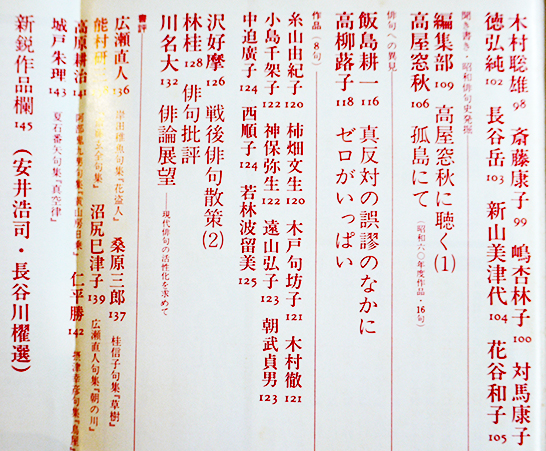 木村聡雄98 斎藤康子99 嶋杏林子100 対馬康子
徳弘純102 長谷岳103 新山美津代104 花谷和子105
聞き書き・昭和俳句史発掘
編集部109 高屋窓秋に聴く(1)
高屋窓秋106 孤島にて(昭和六〇年度作品・16句)
俳句への異見
飯島耕一116 真反対の誤謬のなかに
高柳蕗子118 ゼロがいっぱい
作品(8句)
糸山由紀子120 柿畑文生120 木戸句坊子121 木村徹121
小島千架子122 神保弥生122 遠山弘子123 朝武貞男123
中迫廣子124 西順子124 若林波留美125
沢好摩126 戦後俳句散策(2)
林桂128 俳句批評
川名大132 俳論展望――現代俳句の活性化を求めて
書評
広瀬直人136 岸田稚魚句集『花盗人』 桑原三郎137 桂信子句集『草樹』
能村研三 全句集』 沼尻巳津子139 広瀬直人句集『朝の川』
高原耕治141 仁平勝142 摂津幸彦句集『鳥屋』
城戸朱理143 夏石番矢句集『真空律』
新鋭作品欄145 (安井浩司・長谷川櫂選)